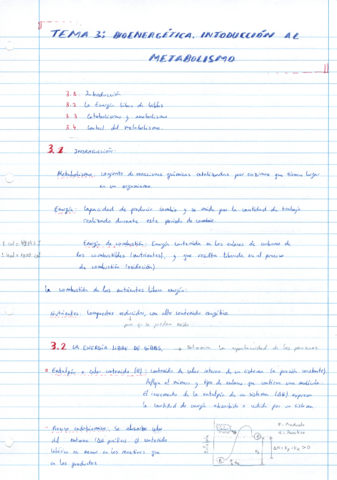 TEMA 3: BIOENERGÉTICA. INTODUCCIÓN AL
METABOLISMO
3.1 Introducción
3.2 La Energía libre de Gibbs
3.3 Catabolismo y anabolismo
3.4 Control del metabolismo.
3.1 INTRODUCCIÓN:
Metabolismo: conjunto de reacciones químicas catalizadas por enzimas que tienen lugar
en un organismo
Energía: Capacidad de producir cambio y se mide por la cantidad de trabajo
realizado durante este periodo de cambio
Energía de combustión: Energía contenida en los enlaces de carbono de
los combustibles (nutrientes), y que resulta liberada en el proceso
de combustión (oxidación)
la combustión de los nutrientes libera energía:
Nutrientes: Compuestos reducidos, con alto contenido energético
para que se puedan oxidar
3.2 LA ENERGÍA LIBRE DE GIBBS. → Determina la espontaneidad de los procesos
Entalpía o Calor contenido (H): contenido de calor interno de un sistema (a presión constante).
Refleja el número y tipo de enlaces que contiene una molécula.
El incremento de la entalpía de un sistema (ΔH) expresa
la cantidad de energía absorbida o cedida por un sistema
Proceso endotérmico: Se absorbe calor
del entorno (ΔH positivo). El contenido
calórico es menor en los reactivos que
en los productos
P = Producto
R = Reactivo
ΔH = Hp - HR > 0